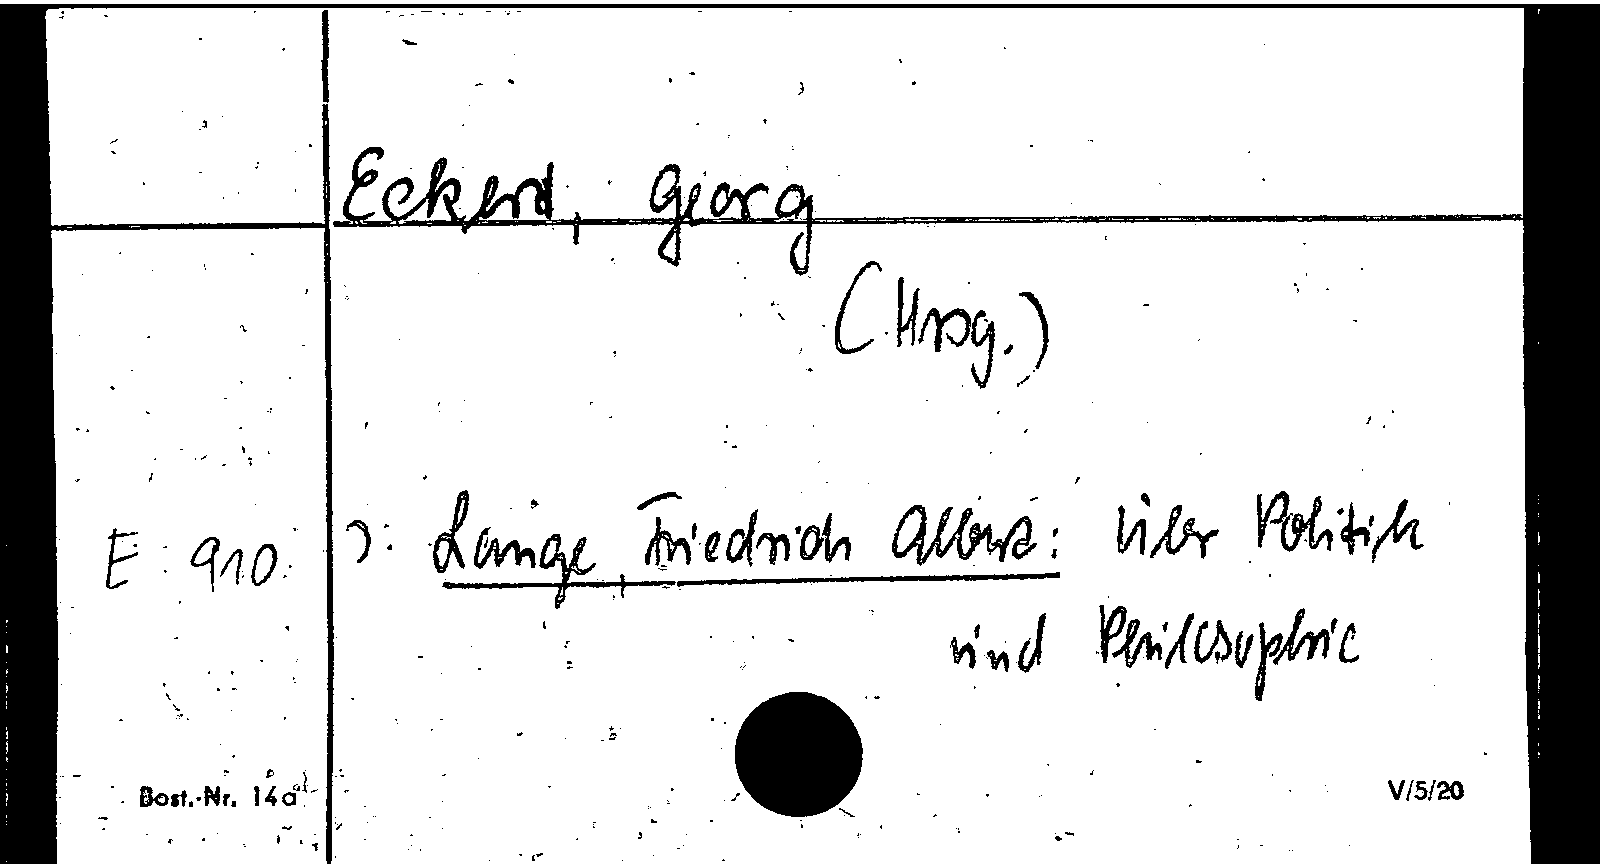 Eckert, Georg
(Hrsg.)
E 910 ): Lange, Friedrich Albert: Über Politik
und Philosophie
Best.-Nr. 14a V/5/20